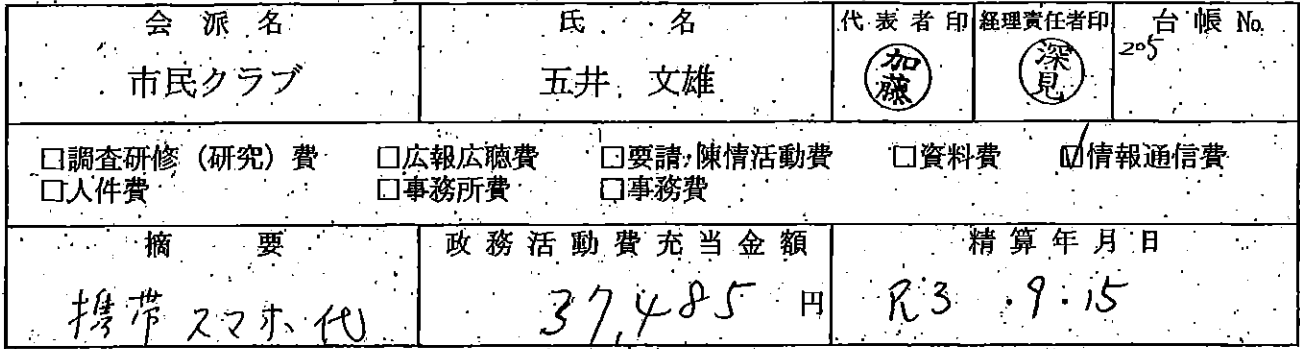 会派名 氏名 代表者印 経理責任者印 台帳No.
市民クラブ 五井 文雄 加藤 深見 205
□調査研修（研究）費 □広報広聴費 □要請・陳情活動費 □資料費 ☑情報通信費
□人件費 □事務所費 □事務費
摘要 政務活動費充当金額 精算年月日
携帯スマホ代 37,485円 R3.9.15